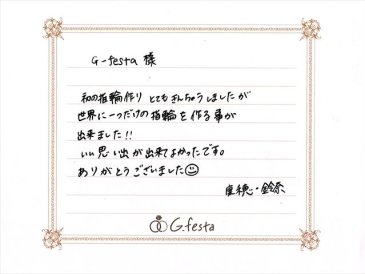 G-festa 様
初の指輪作り とてもきんちょうしましたが
世界に一つだけの指輪を作る事が
出来ました!!
いい思い出が出来てよかったです。
ありがとうございました☺
G.festa